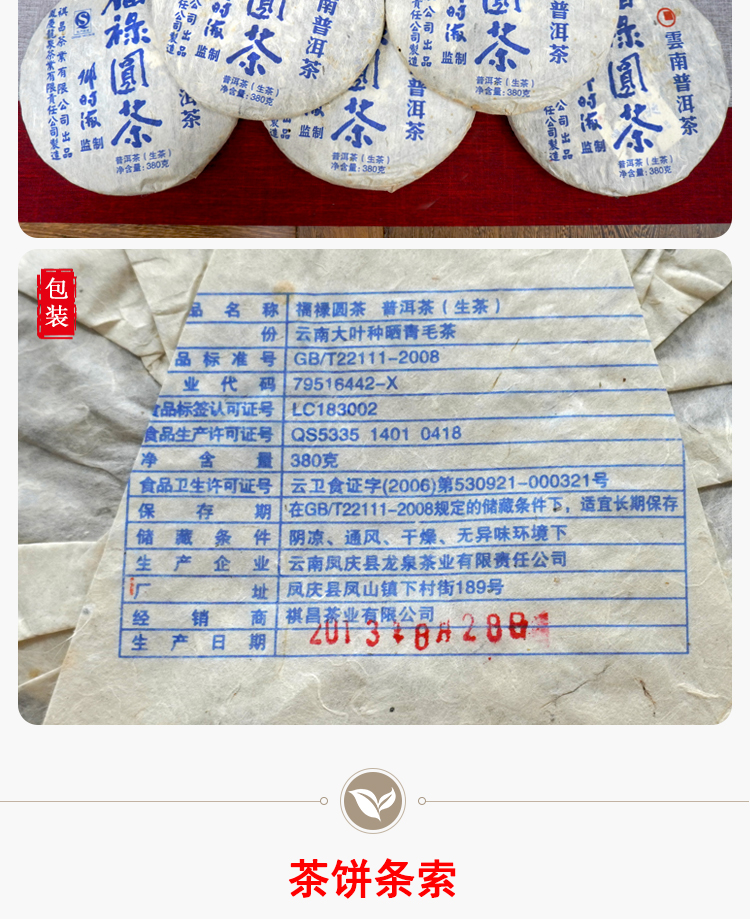 福禄圆茶
雲南普洱茶
祺昌茶業有限公司出品
鳳慶龍泉茶業有限責任公司製造
监制
普洱茶（生茶）
净含量:380克
圆茶
云南普洱茶
公司出品
任公司製造
监制
普洱茶（生茶）
净含量:380克
圆茶
普洱茶
公司出品
任公司製造
监制
普洱茶（生茶）
净含量:380克
茶
普洱茶
监制
普洱茶（生茶）
净含量:380克
禄圆茶
雲南普洱茶
公司出品
任公司製造
监制
普洱茶（生茶）
净含量:380克
包装
品名称 福禄圆茶 普洱茶（生茶）
份 云南大叶种晒青毛茶
品标准号 GB/T22111-2008
业代码 79516442-X
食品标签认可证号 LC183002
食品生产许可证号 QS5335 1401 0418
净含量 380克
食品卫生许可证号 云卫食证字(2006)第530921-000321号
保存期 在GB/T22111-2008规定的储藏条件下，适宜长期保存
储藏条件 阴凉、通风、干燥、无异味环境下
生产企业 云南凤庆县龙泉茶业有限责任公司
厂址 凤庆县凤山镇下村街189号
经销商 祺昌茶业有限公司
生产日期 2013年8月28日
茶饼条索